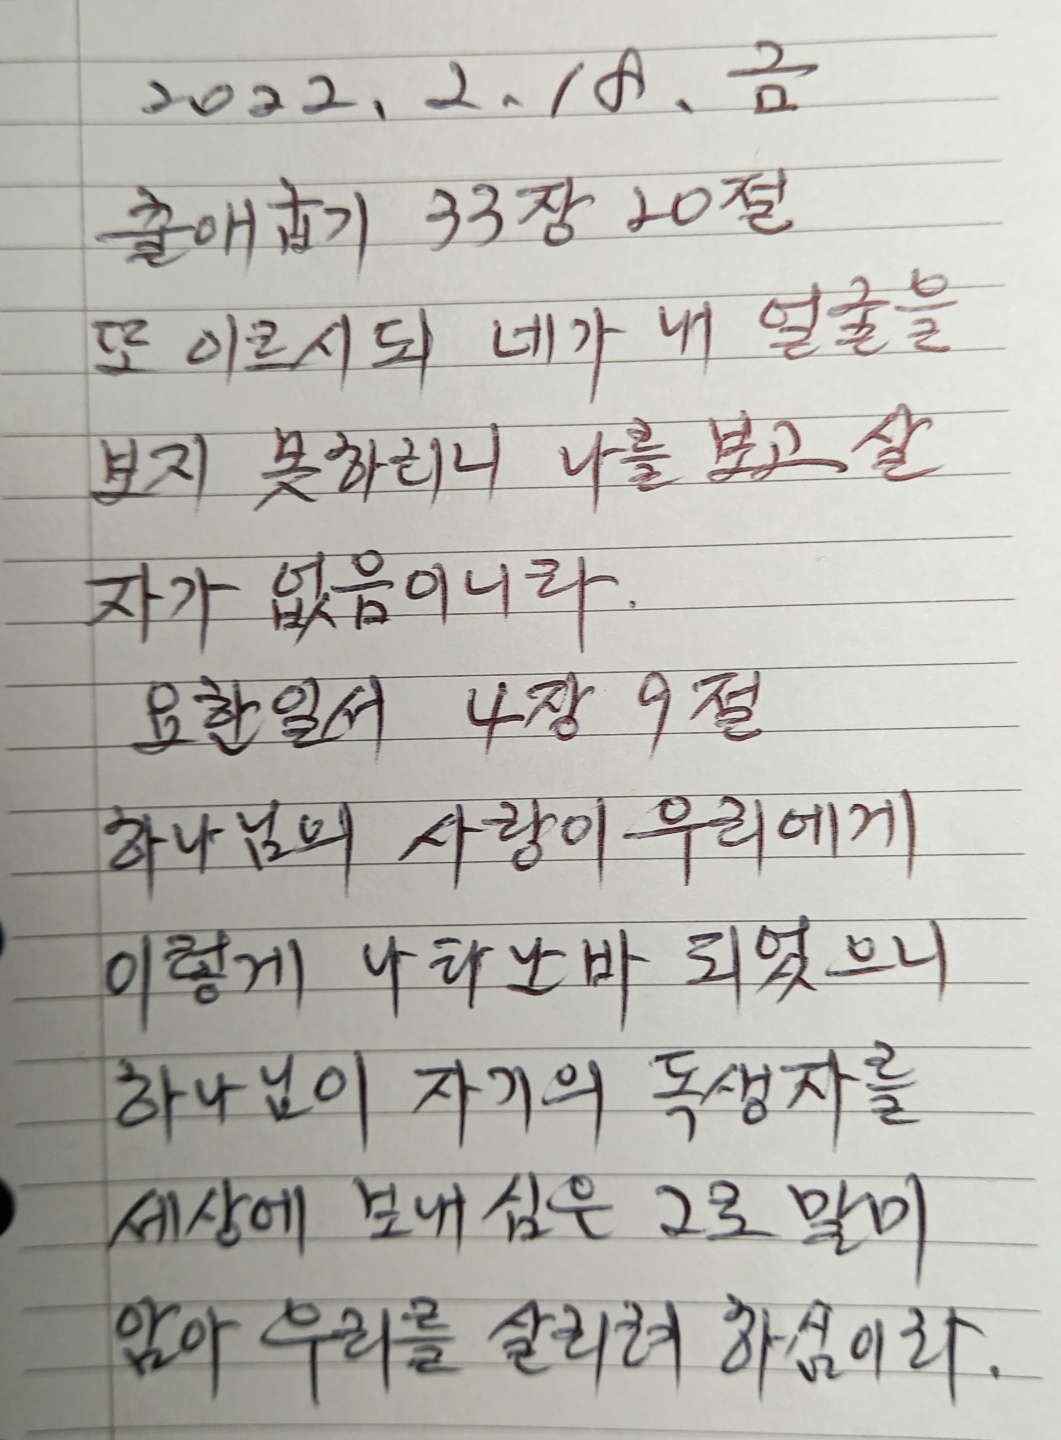 2022. 2. 18. 금
출애굽기 33장 20절
또 이르시되 네가 내 얼굴을
보지 못하리니 나를 보고 살
자가 없음이니라.
요한일서 4장 9절
하나님의 사랑이 우리에게
이렇게 나타난바 되었으니
하나님이 자기의 독생자를
세상에 보내심은 그로 말미
암아 우리를 살리려 하심이라.